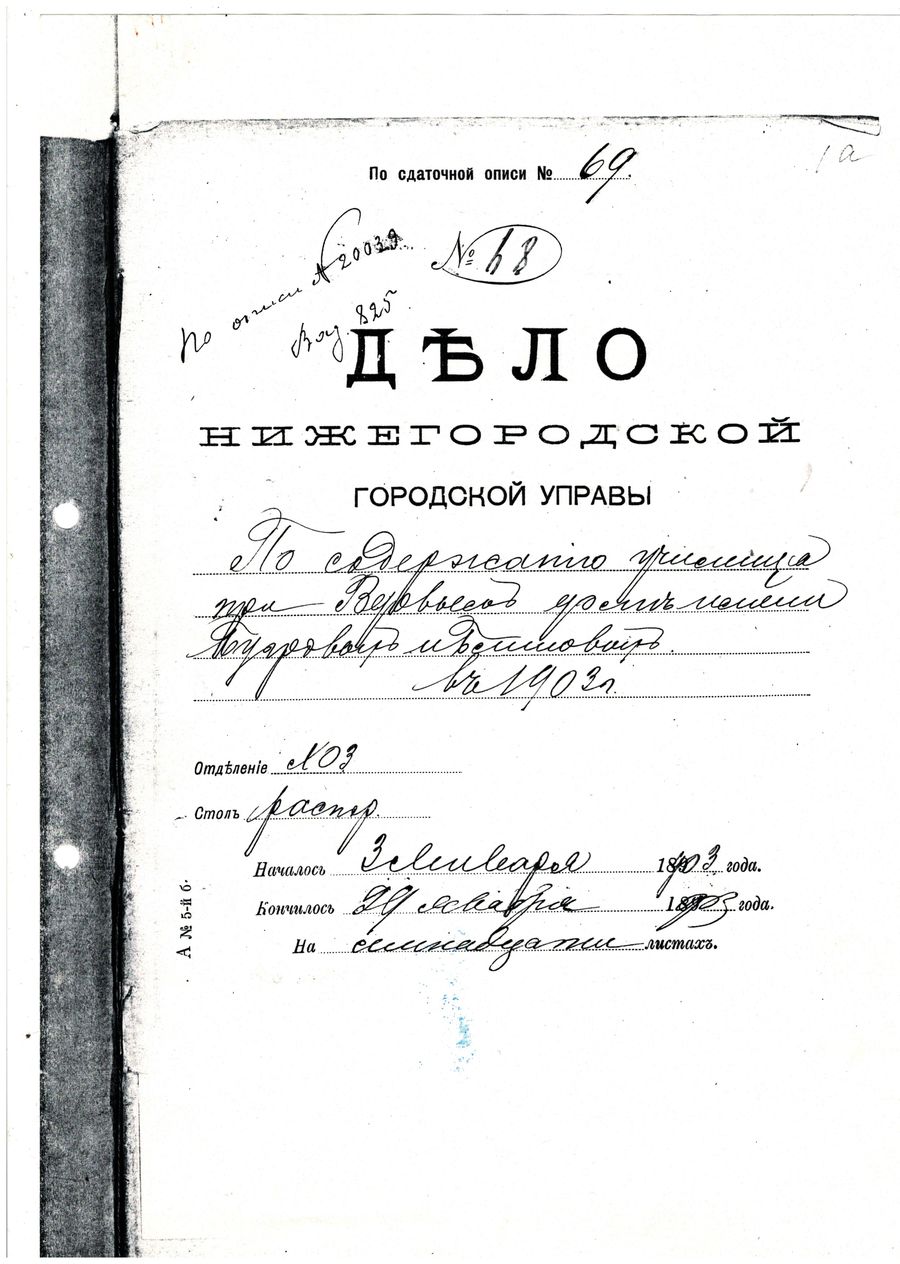 1а
По сдаточной описи № 69.
По описи № 20039
№ 68
Вяз. 825
ДѢЛО
НИЖЕГОРОДСКОЙ
ГОРОДСКОЙ УПРАВЫ
По содержанію училища
при Вдовьемъ домѣ имени
Бугровыхъ и Блиновыхъ
въ 1903 г.
Отдѣленіе № 3
Столъ распор.
Началось 3 Января 1903 года.
Кончилось 29 1903 года.
На семнадцати листахъ.
А № 5-й б.